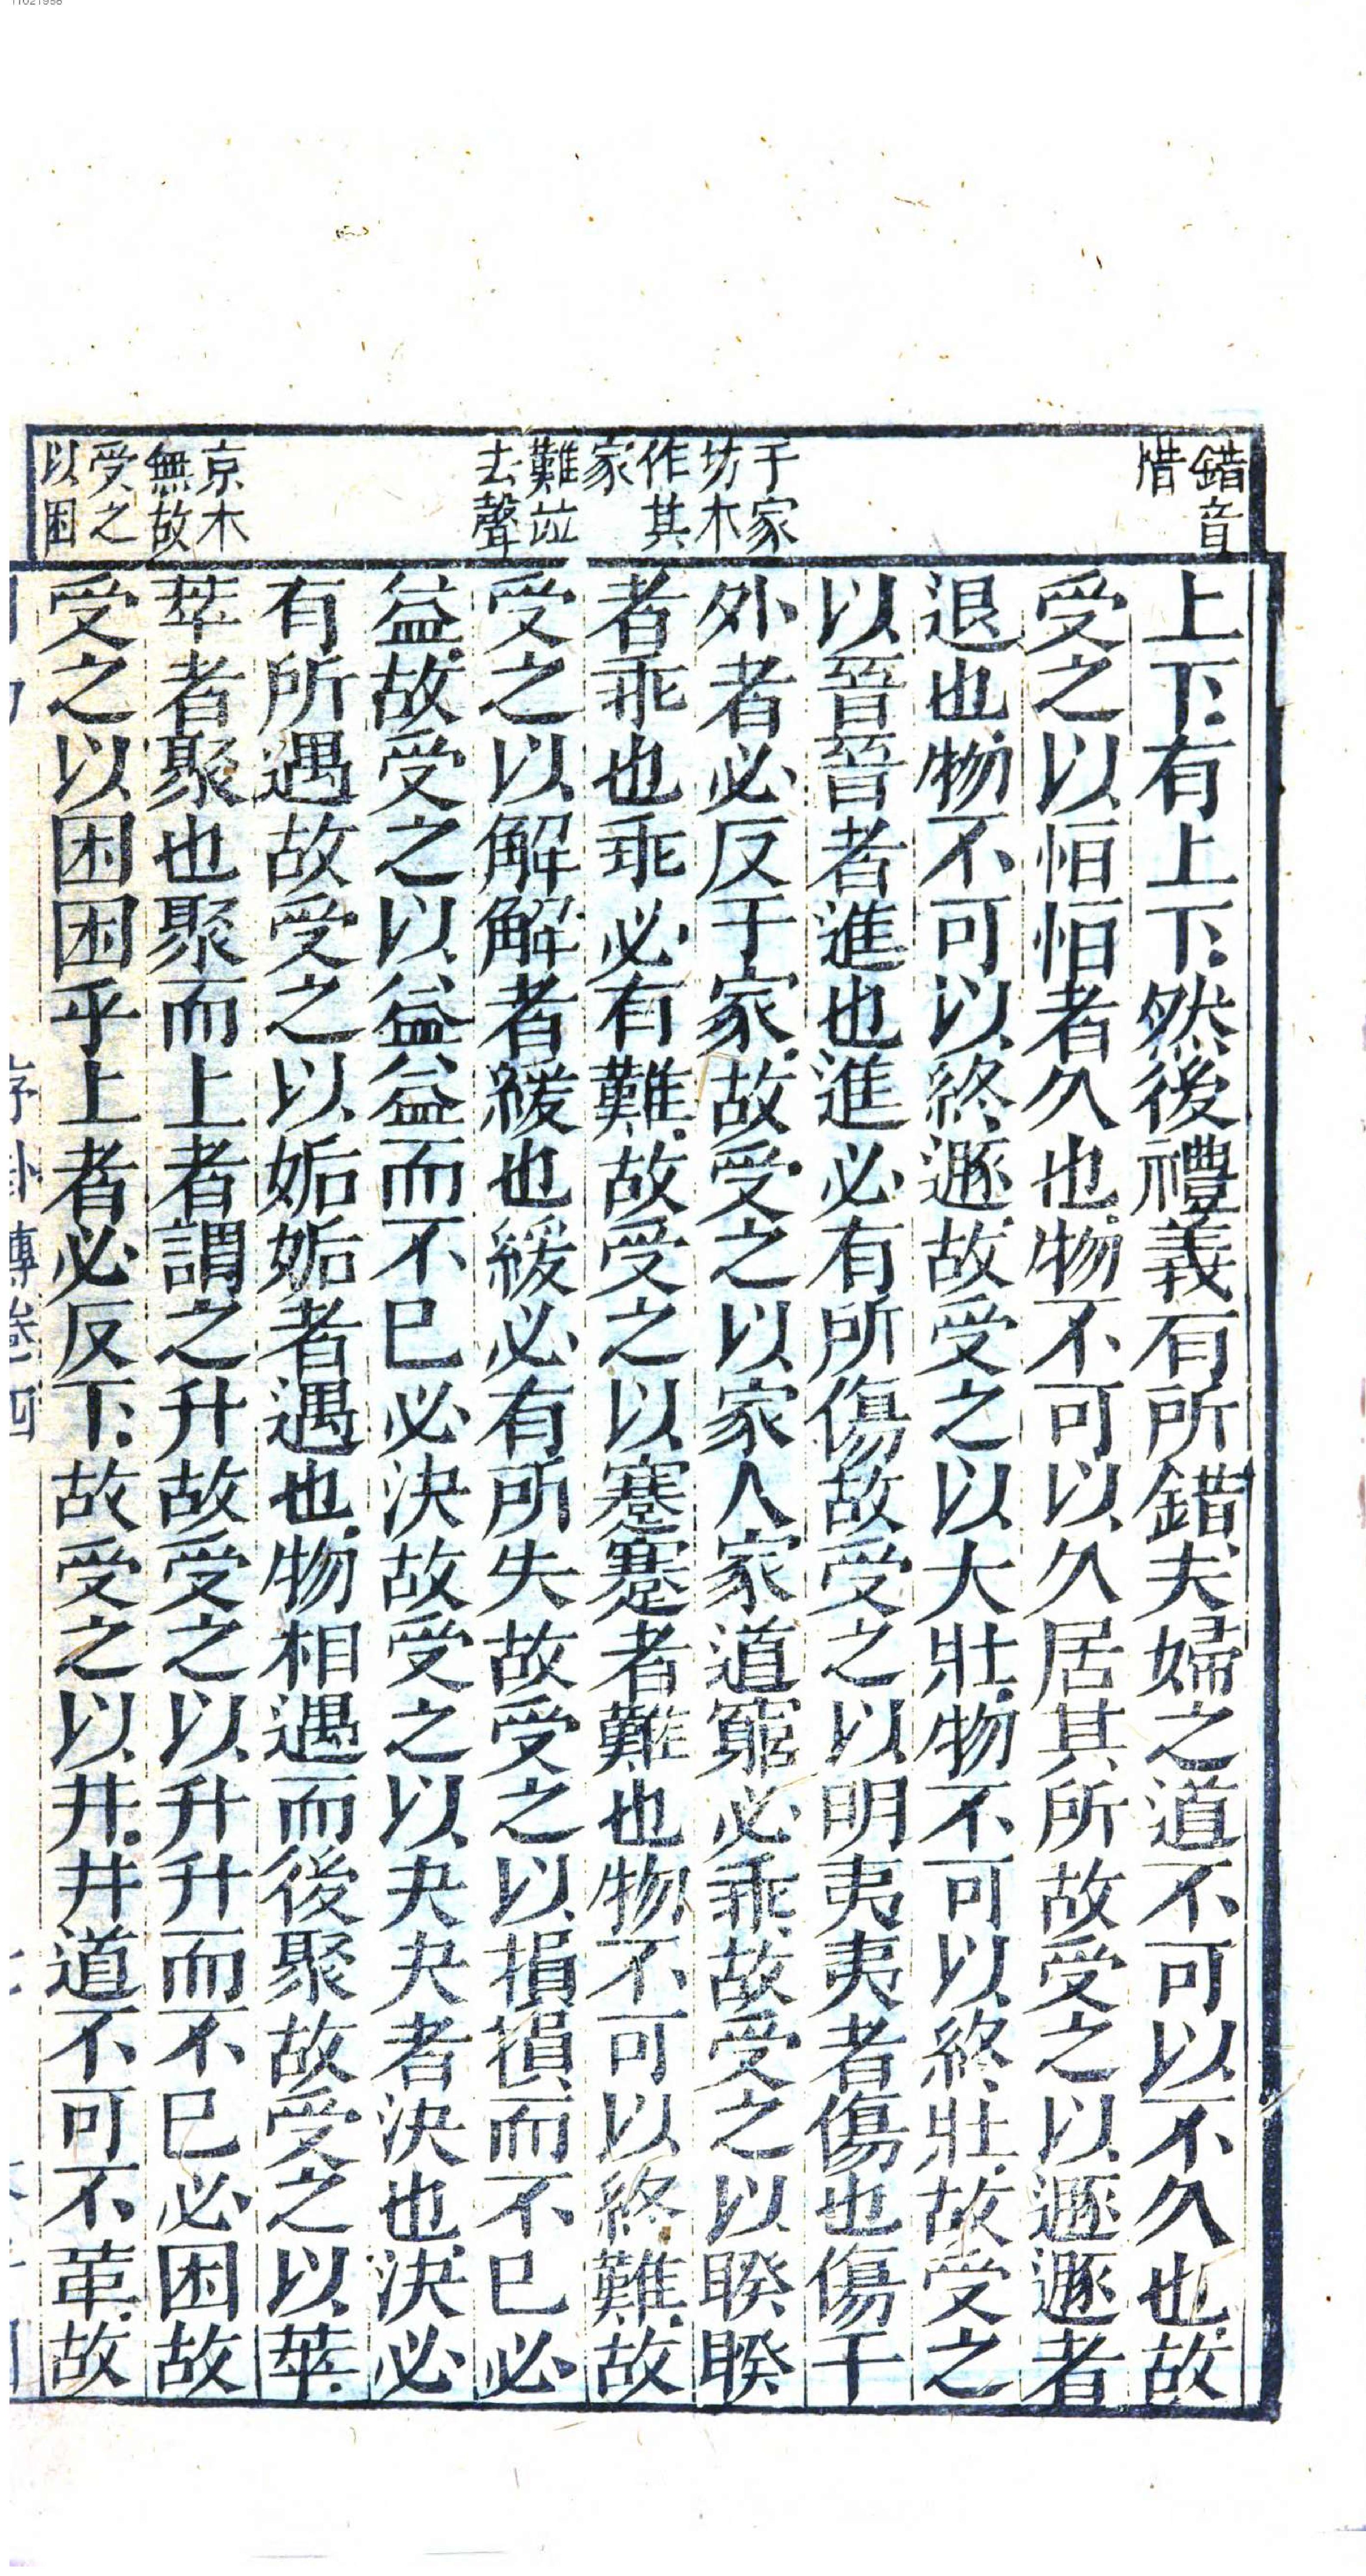 11021998
錯音
惜
于家
坊木
作其
家
難竝
去聲
京木
無故
受之
以困
上下有上下然後禮義有所錯夫婦之道不可以不久也故
受之以恒恒者久也物不可以久居其所故受之以遯遯者
退也物不可以終遯故受之以大壯物不可以終壯故受之
以晉晉者進也進必有所傷故受之以明夷夷者傷也傷于
外者必反于家故受之以家人家道窮必乖故受之以睽睽
者乖也乖必有難故受之以蹇蹇者難也物不可以終難故
受之以解解者緩也緩必有所失故受之以損損而不已必
益故受之以益益而不已必決故受之以夬夬者決也決必
有所遇故受之以姤姤者遇也物相遇而後聚故受之以萃
萃者聚也聚而上者謂之升故受之以升升而不已必困故
受之以困困乎上者必反下故受之以井井道不可不革故
序卦傳卷四